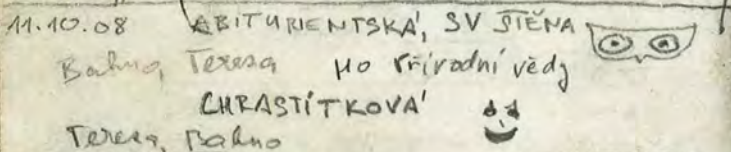 11.10.08 ABITURIENTSKÁ, SV STĚNA
Bahno, Tereza HO Přírodní vědy
CHRASTÍTKOVÁ
Tereza, Bahno